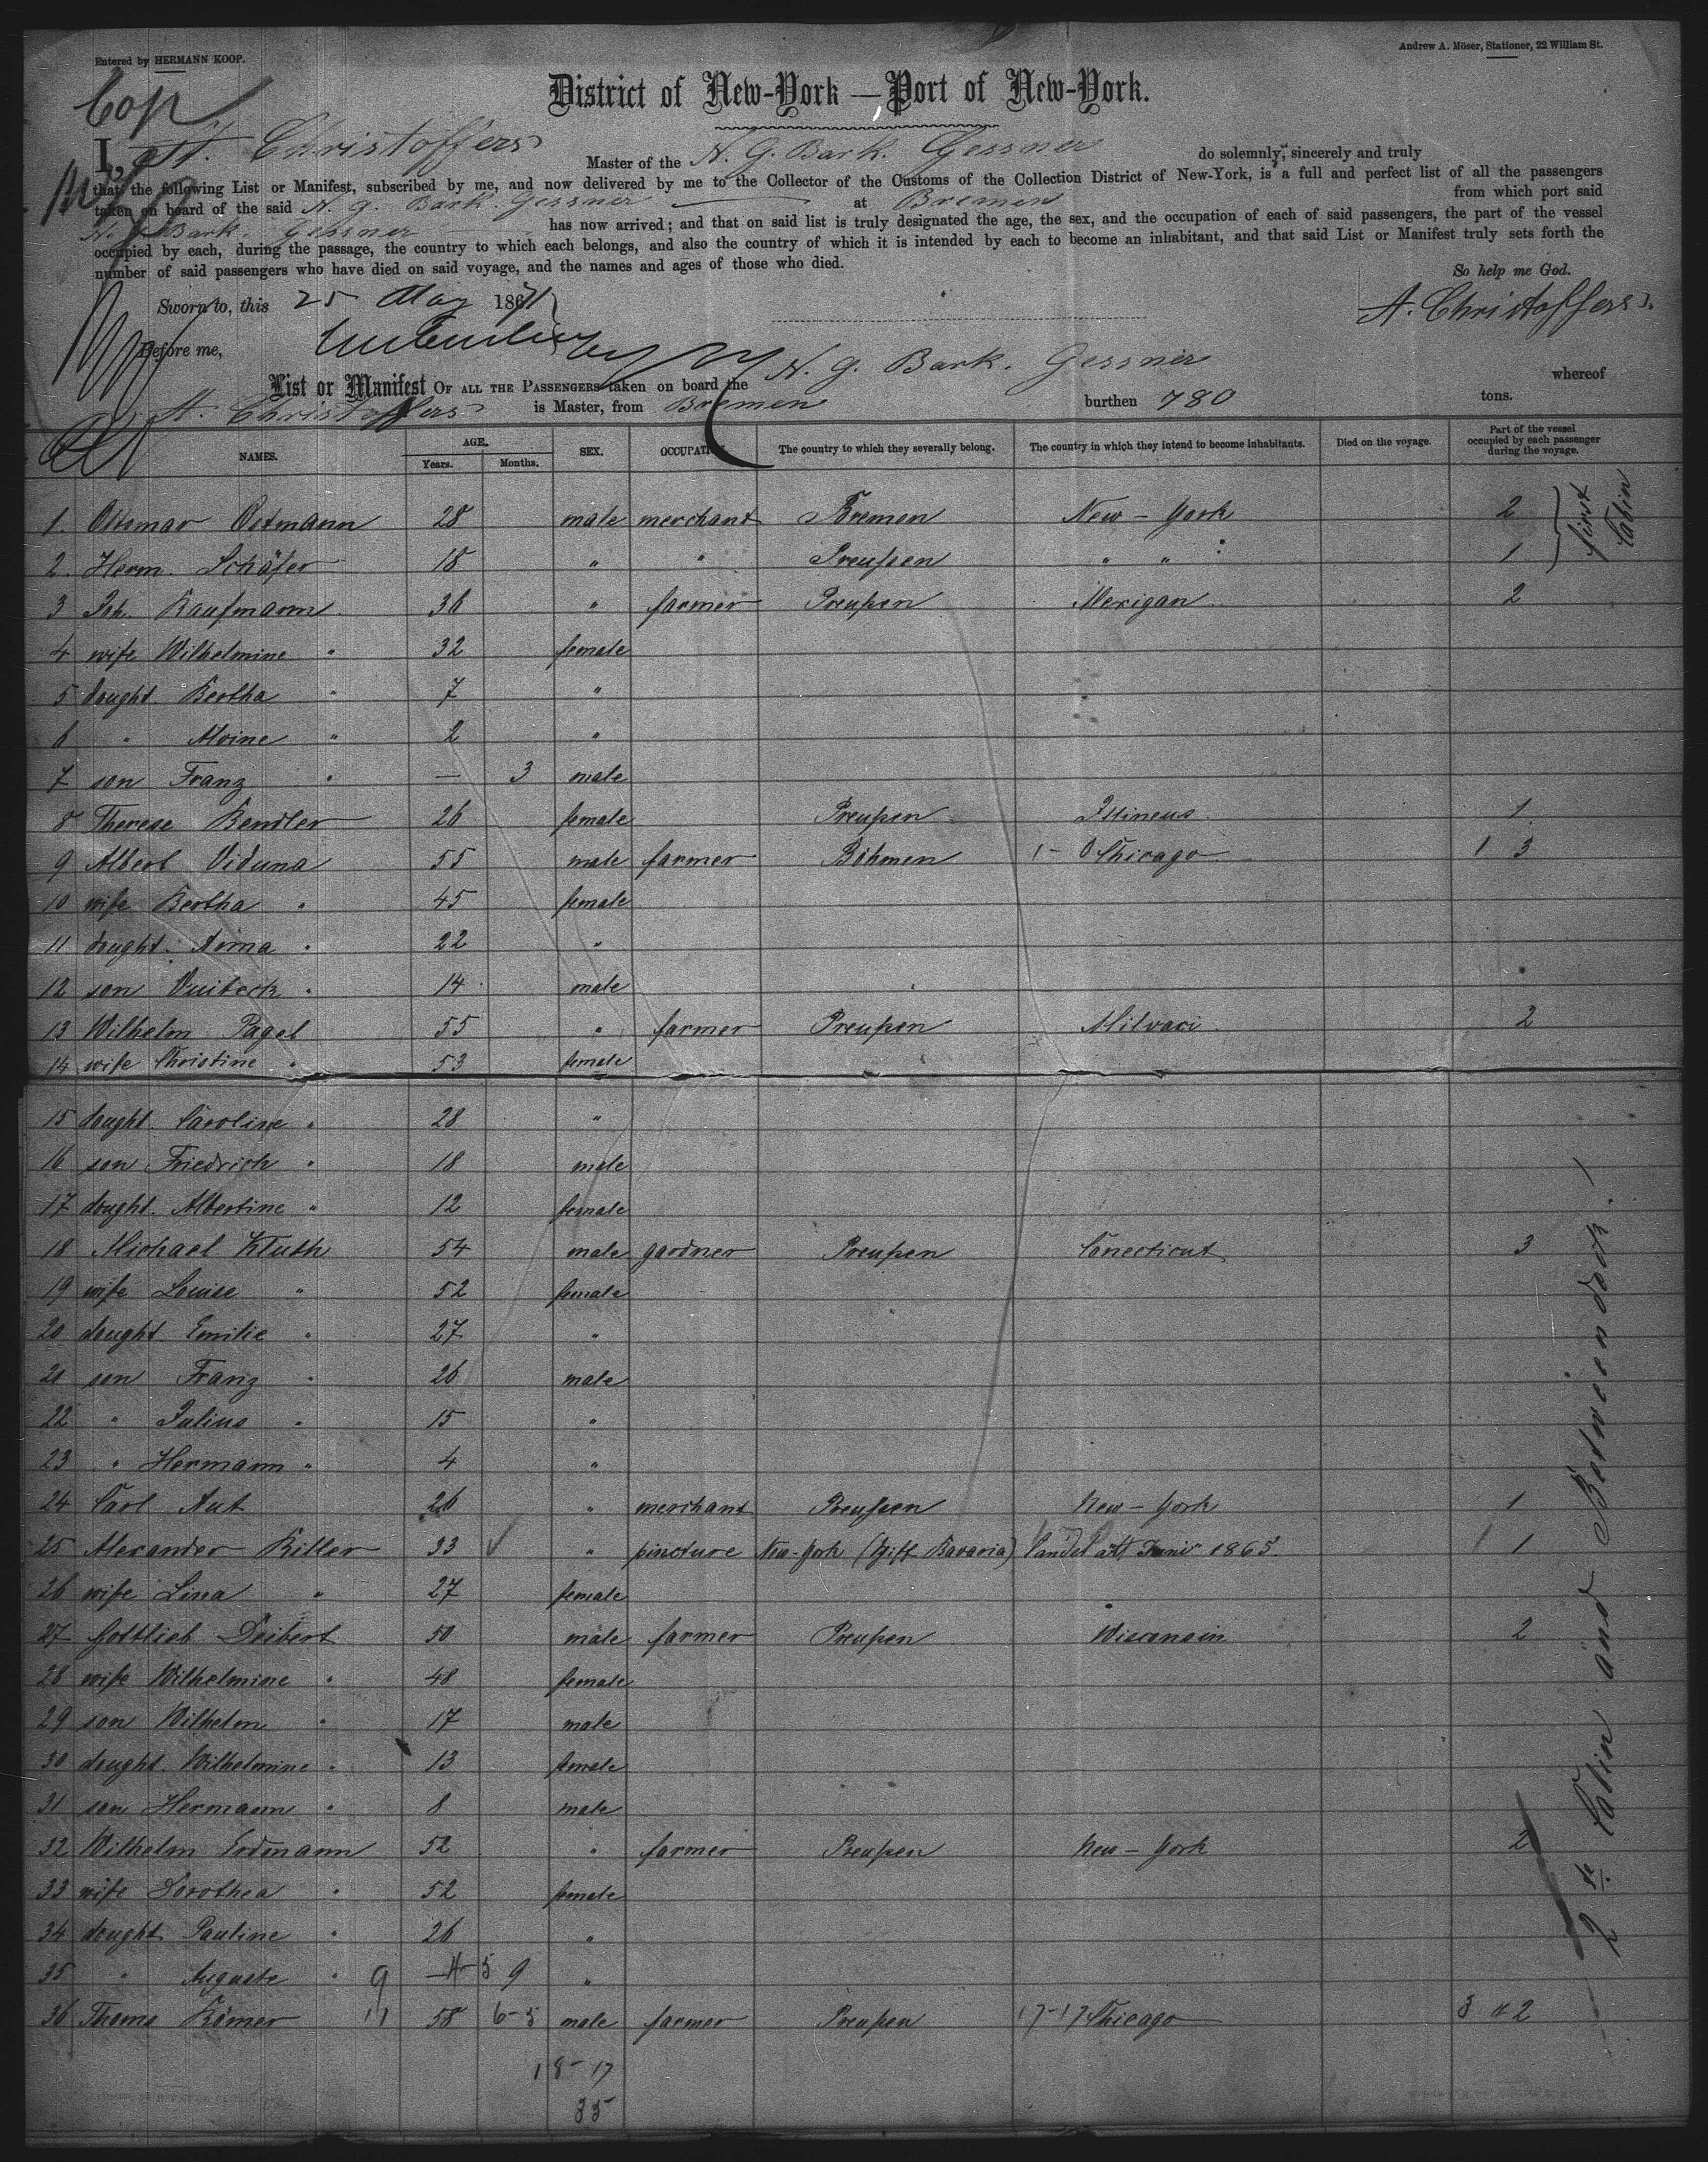 Entered by HERMANN KOOP.
Andrew A. Möser, Stationer, 22 William St.
Cop
District of New-York — Port of New-York.
I, A. Christoffers Master of the N. G. Bark. Gessner do solemnly, sincerely and truly
that the following List or Manifest, subscribed by me, and now delivered by me to the Collector of the Customs of the Collection District of New-York, is a full and perfect list of all the passengers
taken on board of the said N. G. Bark. Gessner at Bremen from which port said
N. G. Bark. Gessner has now arrived; and that on said list is truly designated the age, the sex, and the occupation of each of said passengers, the part of the vessel
occupied by each, during the passage, the country to which each belongs, and also the country of which it is intended by each to become an inhabitant, and that said List or Manifest truly sets forth the
number of said passengers who have died on said voyage, and the names and ages of those who died.
So help me God.
Sworn to, this 25 May 1871
A. Christoffers
Before me,
List or Manifest OF ALL THE PASSENGERS taken on board the N. G. Bark. Gessner whereof
A. Christoffers is Master, from Bremen burthen 780 tons.
NAMES. AGE. Years. Months. SEX. OCCUPATION The country to which they severally belong. The country in which they intend to become inhabitants. Died on the voyage. Part of the vessel occupied by each passenger during the voyage.
1. Ottomar Oetmann 28 male merchant Bremen New - York 2
first Cabin
2. Herm. Schäfer 18 " " Preußen " " 1
3 Joh. Kaufmann 36 " farmer Preußen Mexigan 2
4 wife Wilhelmine " 32 female
5 dought. Bertha " 7 "
6 " Alvine " 2 "
7 son Franz " — 3 male
8 Therese Bendler 26 female Preußen Illineus 1
9 Albert Viduna 55 male farmer Böhmen 1-0 Chicago 1 3
10 wife Bertha " 45 female
11 dought. Anna " 22 "
12 son " 14 male
13 Wilhelm Pagel 55 " farmer Preußen Milvaci 2
14 wife Christine " 53 female
15 dought. Caroline " 28 "
16 son Friedrich " 18 male
17 dought. Albertine " 12 female
18 Michael Kluth 54 male gardner Preußen Conecticut 3
19 wife Louise " 52 female
20 dought Emilie " 27 "
21 son Franz " 26 male
22 " Julius " 15 "
23 " Hermann " 4 "
24 Carl Aut 26 " merchant Preußen New - York 1
25 Alexander Killer 33 " pincture New-York ( Bavaria) 1865. 1
26 wife Lina " 27 female
27 Gottlieb Deibert 50 male farmer Preußen Wisconsin 2
28 wife Wilhelmine " 48 female
29 son Wilhelm " 17 male
30 dought. Wilhelmine " 13 female
31 son Hermann " 8 male
32 Wilhelm Erdmann 52 " farmer Preußen New - York 2
33 wife Dorothea " 52 female
34 dought Pauline " 26 "
35 " Auguste " 9 5 9 "
36 Thoms Römer 11 58 6-5 male farmer Preußen 17-17 Chicago 3 2
2te Cabin and Betweendeck.
18-17
35